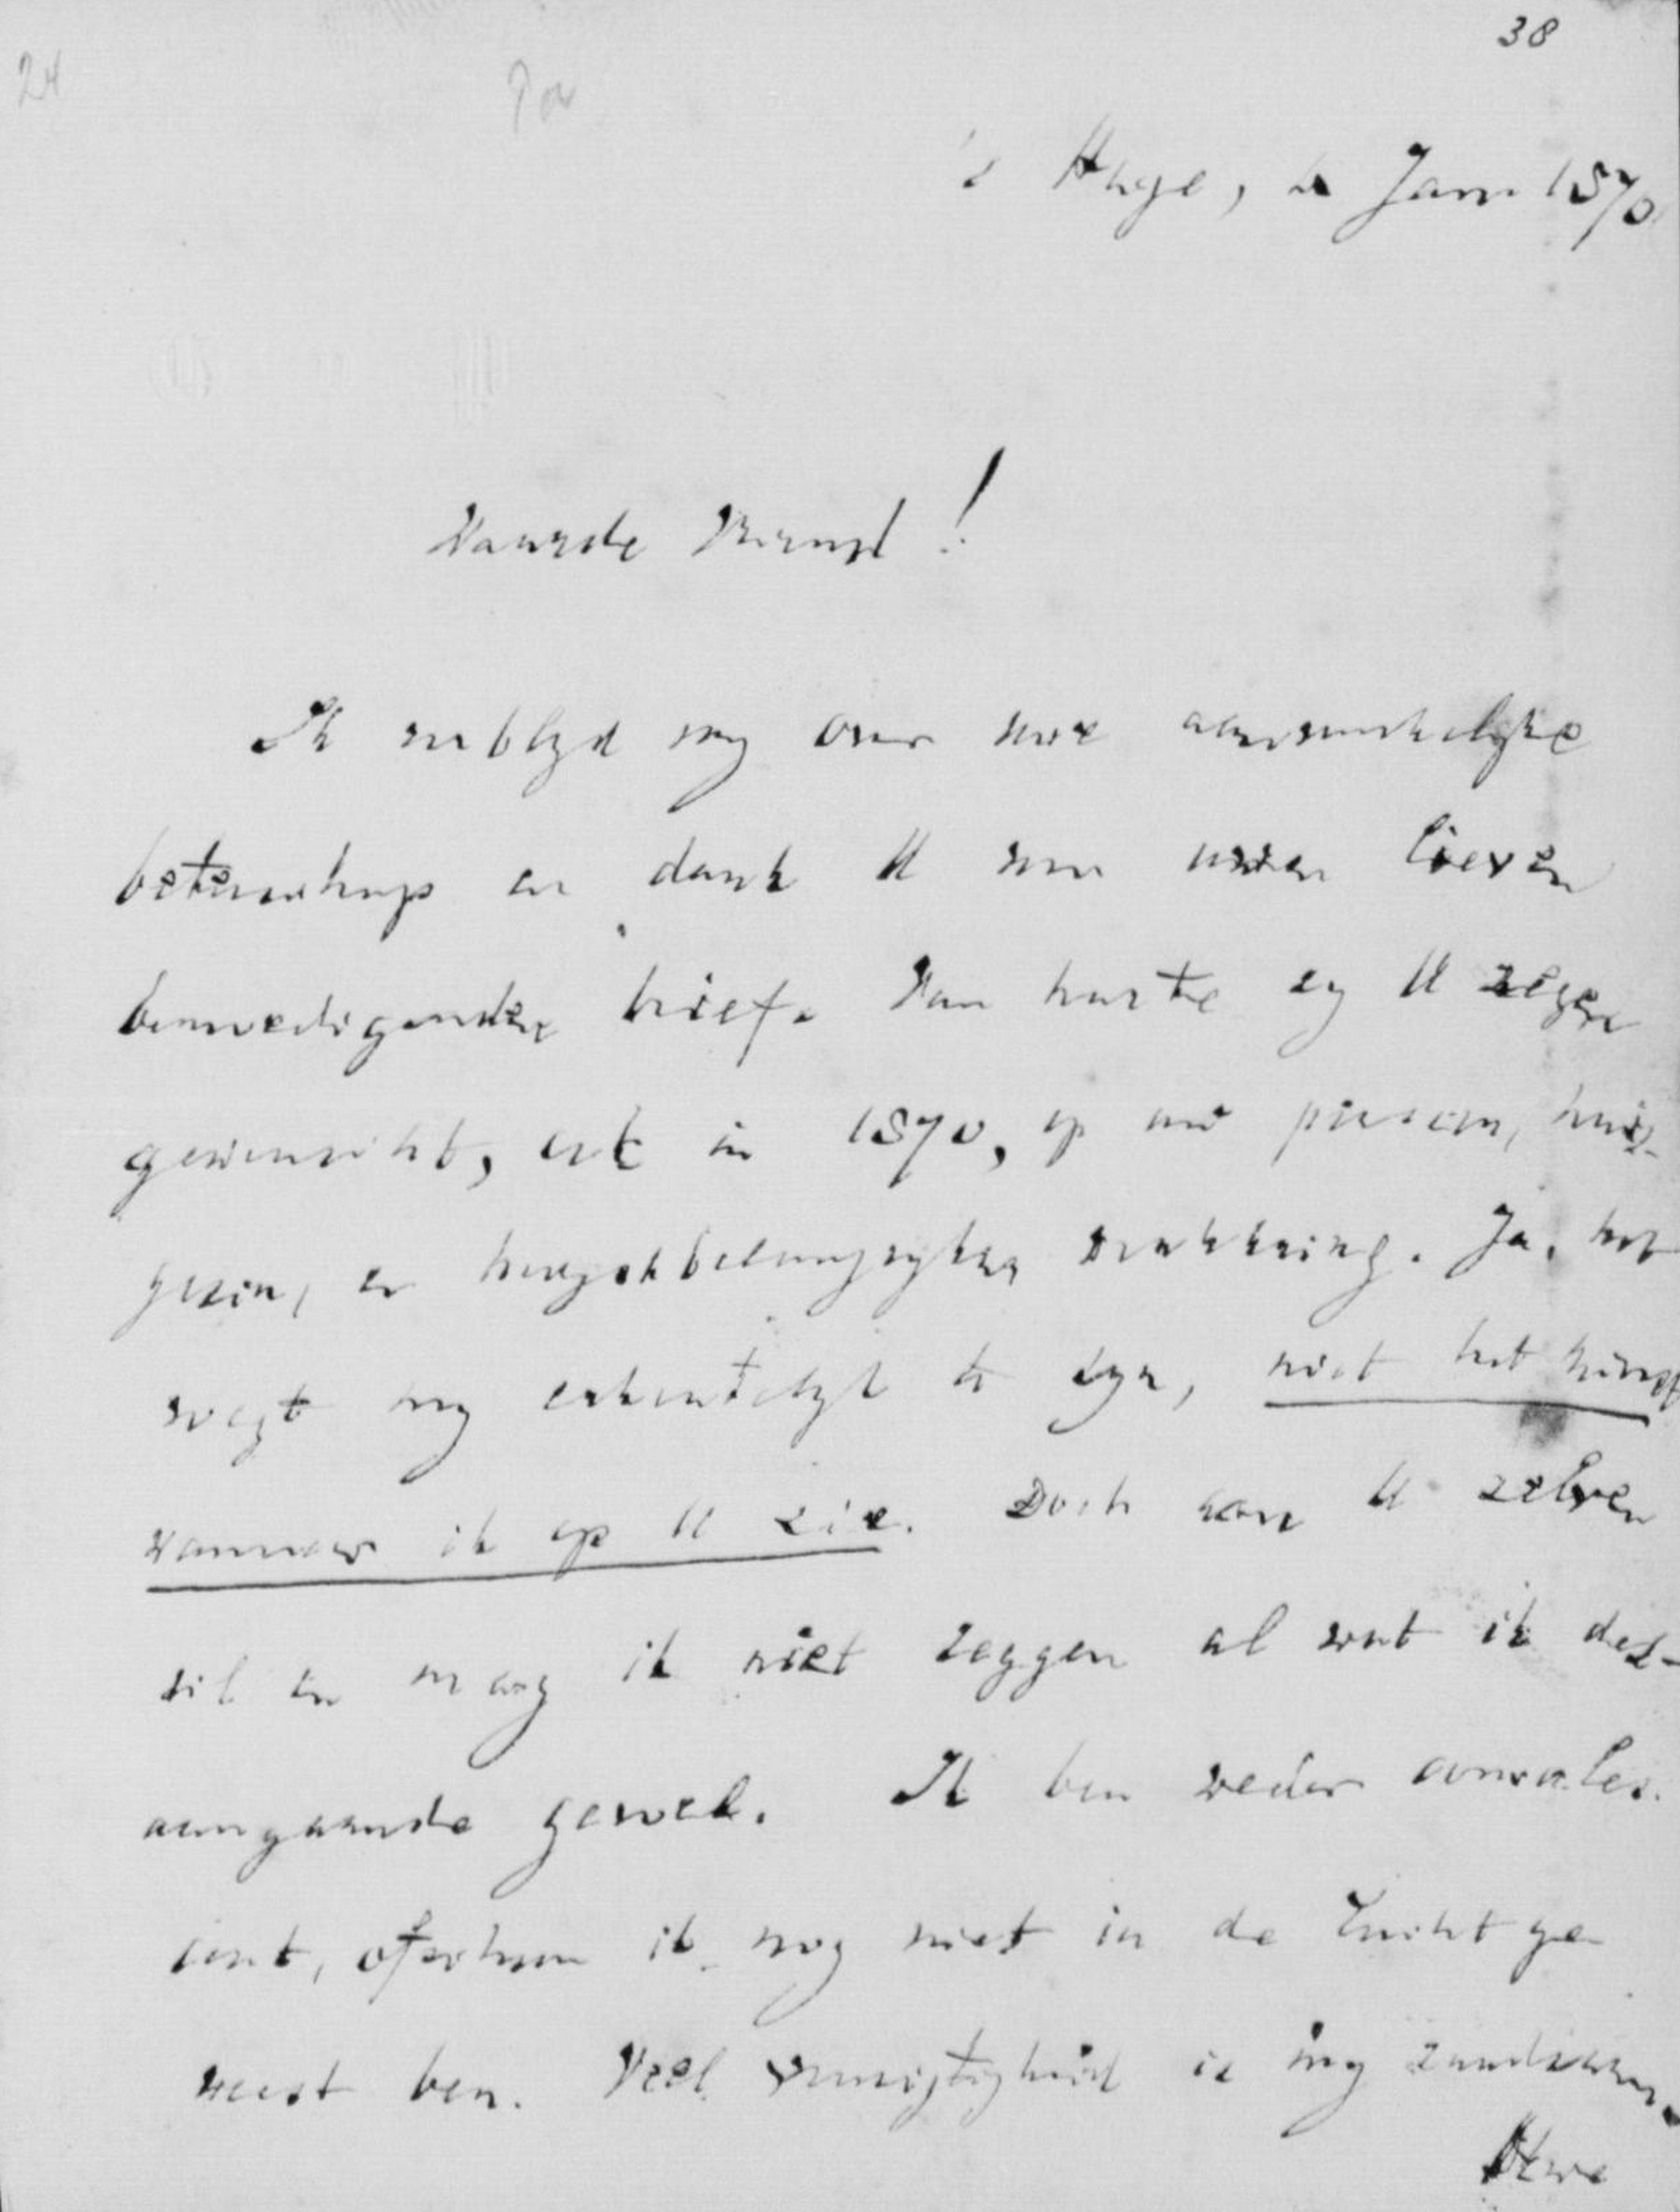 38
24
's Hage, 2 Jan. 1870
Waarde Vriend!
Ik verblijd mij over uwe aanvankelijke
beterschap en dank U voor uwen lieven
bemoedigenden brief. Van harte zij U zegen
gewenscht, ook in 1870, op uw persoon, huis-
gezin, en hoogstbelangrijken werkkring. Ja, het
voegt mij erkentelijk te zijn, niet het minst
wanneer ik op U zie. Doch aan U zelven
wil en mag ik niet zeggen al wat ik des-
aangaande gevoel. Ik ben weder convales-
cent, ofschoon ik nog niet in de lucht ge-
weest ben. Veel voorzigtigheid is mij raadzaam.
Uwe